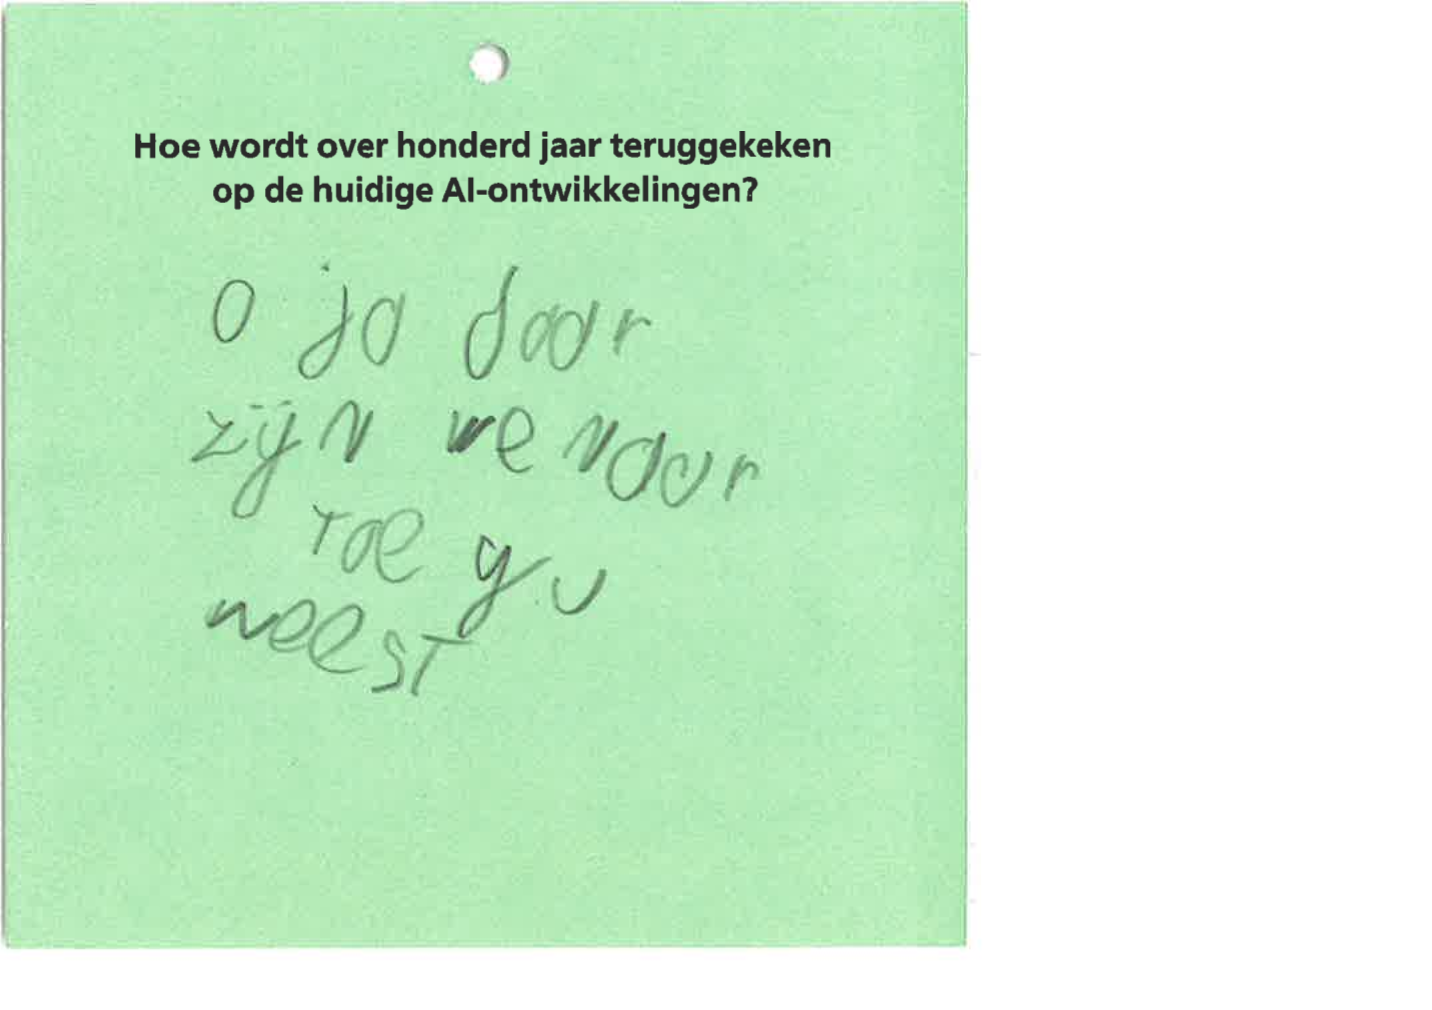 Hoe wordt over honderd jaar teruggekeken
op de huidige AI-ontwikkelingen?
o ja daar
zijn we naar
toe gu
weest